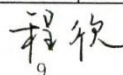 程欣
9